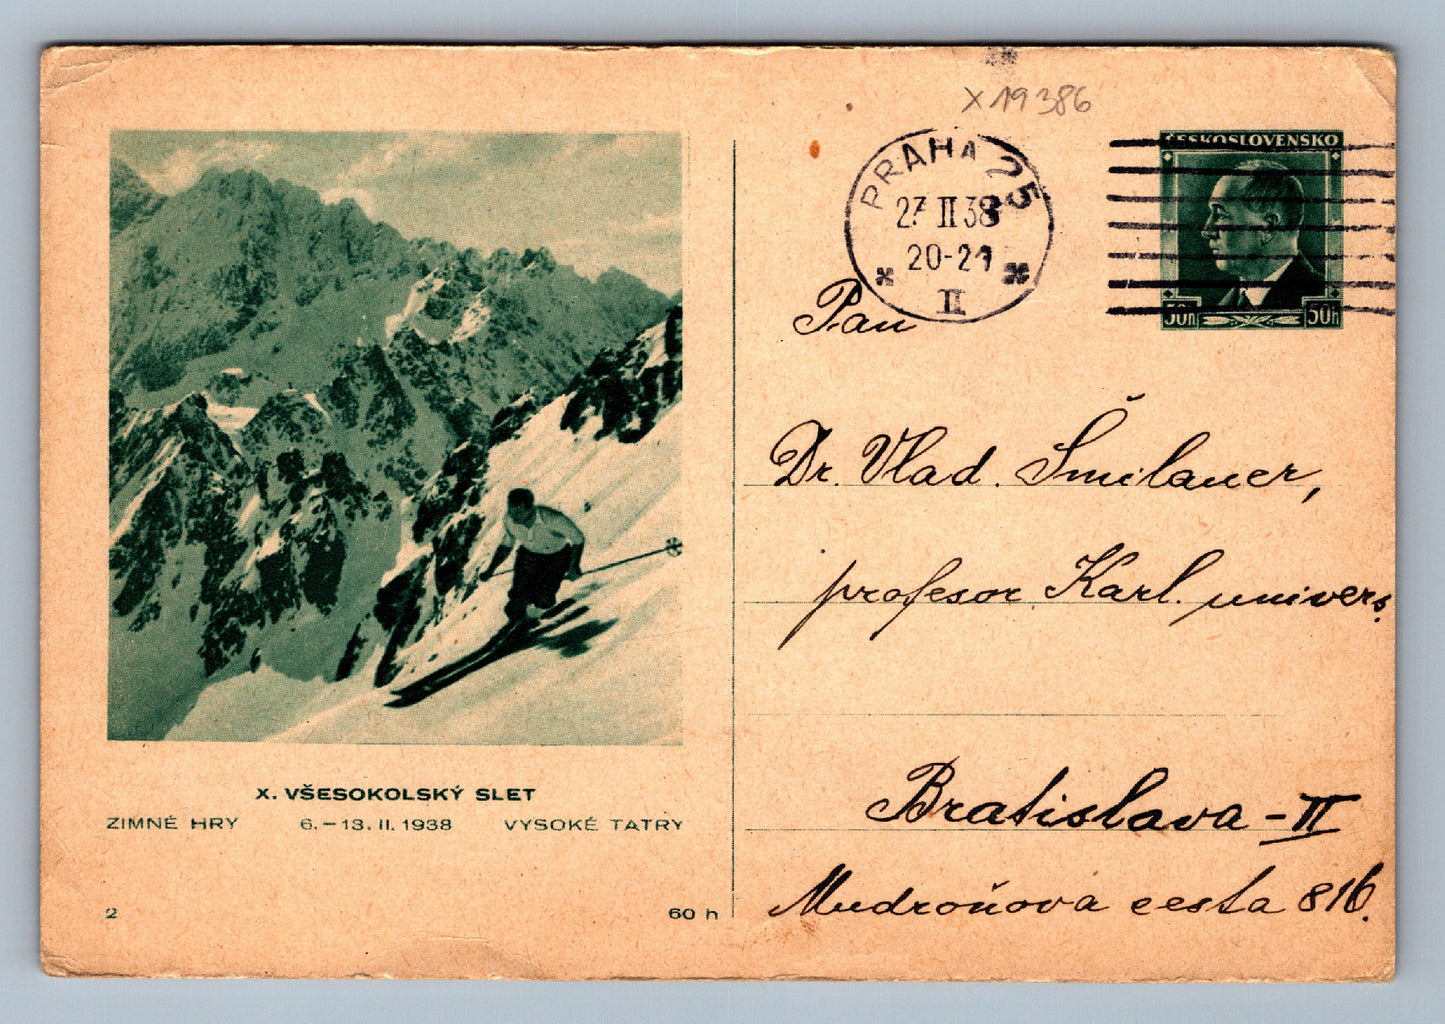 X 19386
PRAHA 25
27 II 38
20-21
II
ČESKOSLOVENSKO
50h 50h
Pan
Dr. Vlad. Šmilauer,
profesor Karl. univers.
Bratislava - II
Mudroňova cesta 816.
X. VŠESOKOLSKÝ SLET
ZIMNÉ HRY 6.-13. II. 1938 VYSOKÉ TATRY
2 60 h